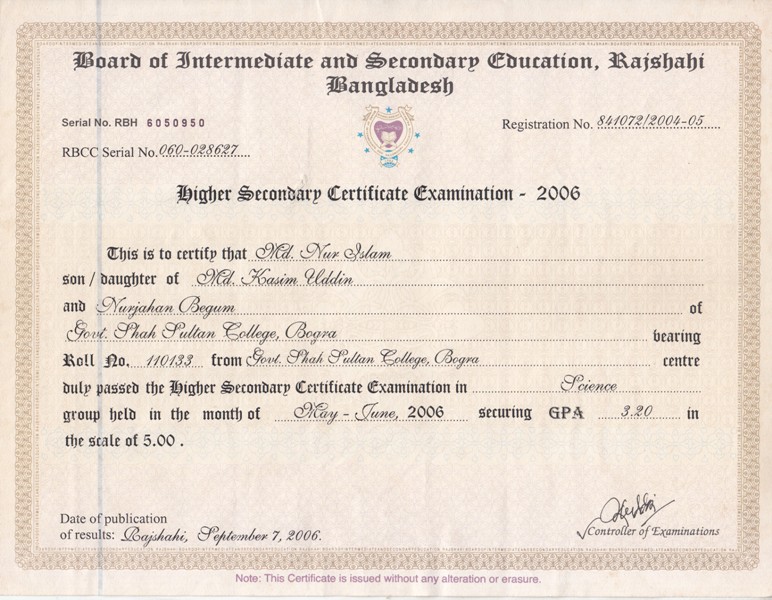 Board of Intermediate and Secondary Education, Rajshahi
Bangladesh
Serial No. RBH 6050950
Registration No. 841072/2004-05
RBCC Serial No. 060-028627
Higher Secondary Certificate Examination - 2006
This is to certify that Md. Nur Islam
son / daughter of Md. Kasim Uddin
and Nurjahan Begum of
Govt. Shah Sultan College, Bogra bearing
Roll No. 110133 from Govt. Shah Sultan College, Bogra centre
duly passed the Higher Secondary Certificate Examination in Science
group held in the month of May - June, 2006 securing GPA 3.20 in
the scale of 5.00 .
Date of publication
of results: Rajshahi, September 7, 2006.
Controller of Examinations
Note: This Certificate is issued without any alteration or erasure.